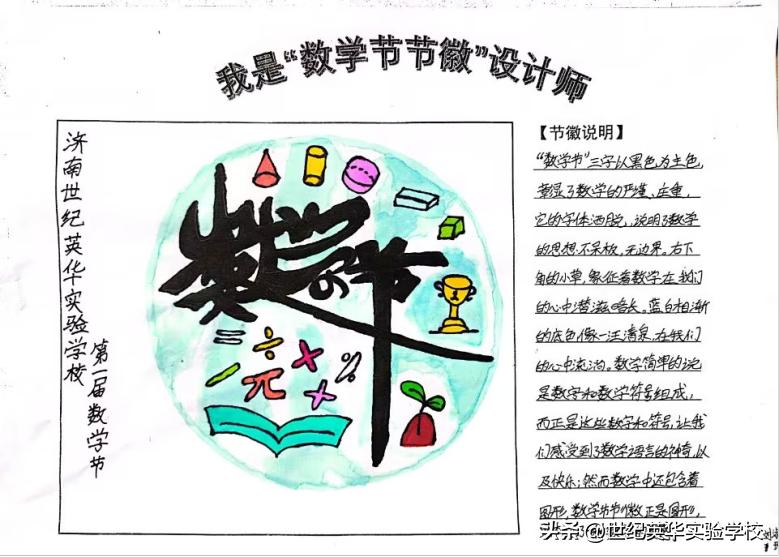 我是“数学节节徽”设计师
济南世纪英华实验学校
第一届数学节
数学节
π
【节徽说明】
“数学节”三字以黑色为主色,
彰显了数学的严谨、庄重,
它的字体洒脱,说明了数学
的思想不呆板,无边界。右下
角的小草,象征着数学在我们
的心中潜滋暗长。蓝白相渐
的底色像一汪清泉,在我们
的心中流淌。数学简单的说
是数字和数学符号组成,
而正是这些数字和符号,让我
们感受到了数学语言的神奇,以
及快乐;然而数学中还包含着
图形,数学节节徽正是圆形,
头条@世纪英华实验学校